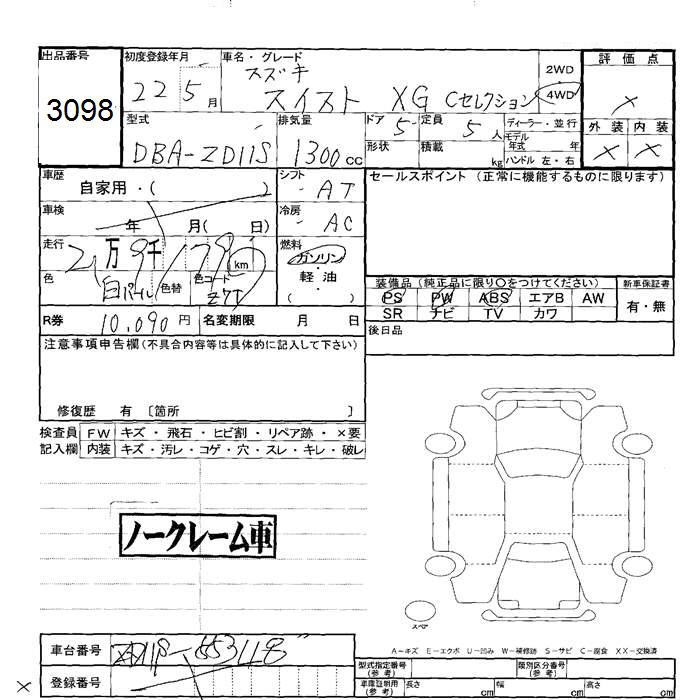 出品番号
3098
初度登録年月
22 5 月
車名・グレード
スズキ
スイスト XG Cセレクション
2WD
4WD
評価点
×
外装 内装
× ×
型式
DBA-ZD11S
排気量
1300 cc
ドア 5
形状
定員 5 人
積載 kg
ディーラー・並行
モデル
年式 年
ハンドル 左・右
車歴
自家用・( )
シフト
AT
セールスポイント (正常に機能するものに限ります)
車検
年 月( 日)
冷房
AC
走行
2 万 9 千 179 km
燃料
ガソリン
・
軽油
( )
色
白パール
色替
色コード
Z7T
装備品 (純正品に限り〇をつけてください)
PS PW ABS エアB AW
SR ナビ TV カワ
新車保証書
有・無
R券
10,090 円
名変期限 月 日
後日品
注意事項申告欄(不具合内容等は具体的に記入して下さい)
修復歴 有 〔箇所 〕
検査員
記入欄
FW キズ・飛石・ヒビ割・リペア跡・×要
内装 キズ・汚レ・コゲ・穴・スレ・キレ・破レ
ノークレーム車
スペア
A-キズ E-エクボ U-凹み W-補修跡 S-サビ C-腐食 XX-交換済
車台番号
登録番号
型式指定番号
(参考)
類別区分番号
(参考)
車庫証明用
(参考)
長さ cm
幅 cm
高さ cm
×